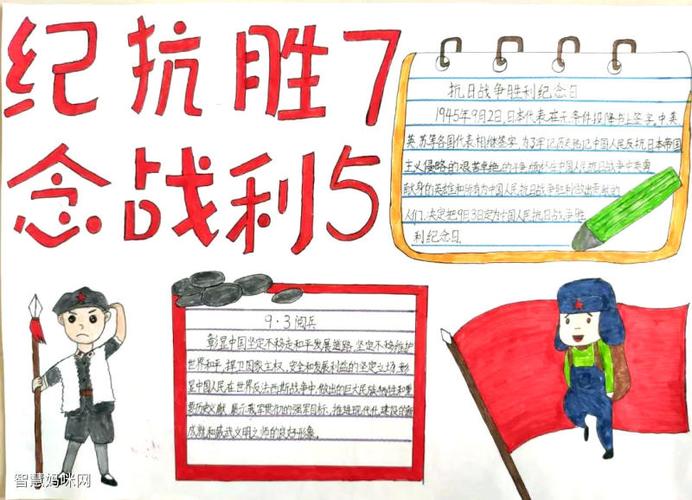 纪抗胜7
念战利5
抗日战争胜利纪念日
1945年9月2日,日本代表在无条件投降书上签字,中美
英,苏等各国代表相继签字,为了牢记历史,铭记中国人民反抗日本帝国
主义侵略的艰苦卓绝的斗争,缅怀在中国人民抗日战争中英勇
献身的英雄和所有为中国人民抗日战争胜利做出贡献的
人们,决定把9月3日定为中国人民抗日战争胜
利纪念日.
9·3阅兵
彰显中国坚定不移走和平发展道路,坚定不移维护
世界和平,捍卫国家主权,安全和发展利益的坚定立场,彰
显中国人民在世界反法西斯战争中,做出的巨大民族牺牲和重
要历史贡献,展示我军 的强军目标,推进现代化建设的新
成就和威武文明之师的良好形象.
智慧妈咪网